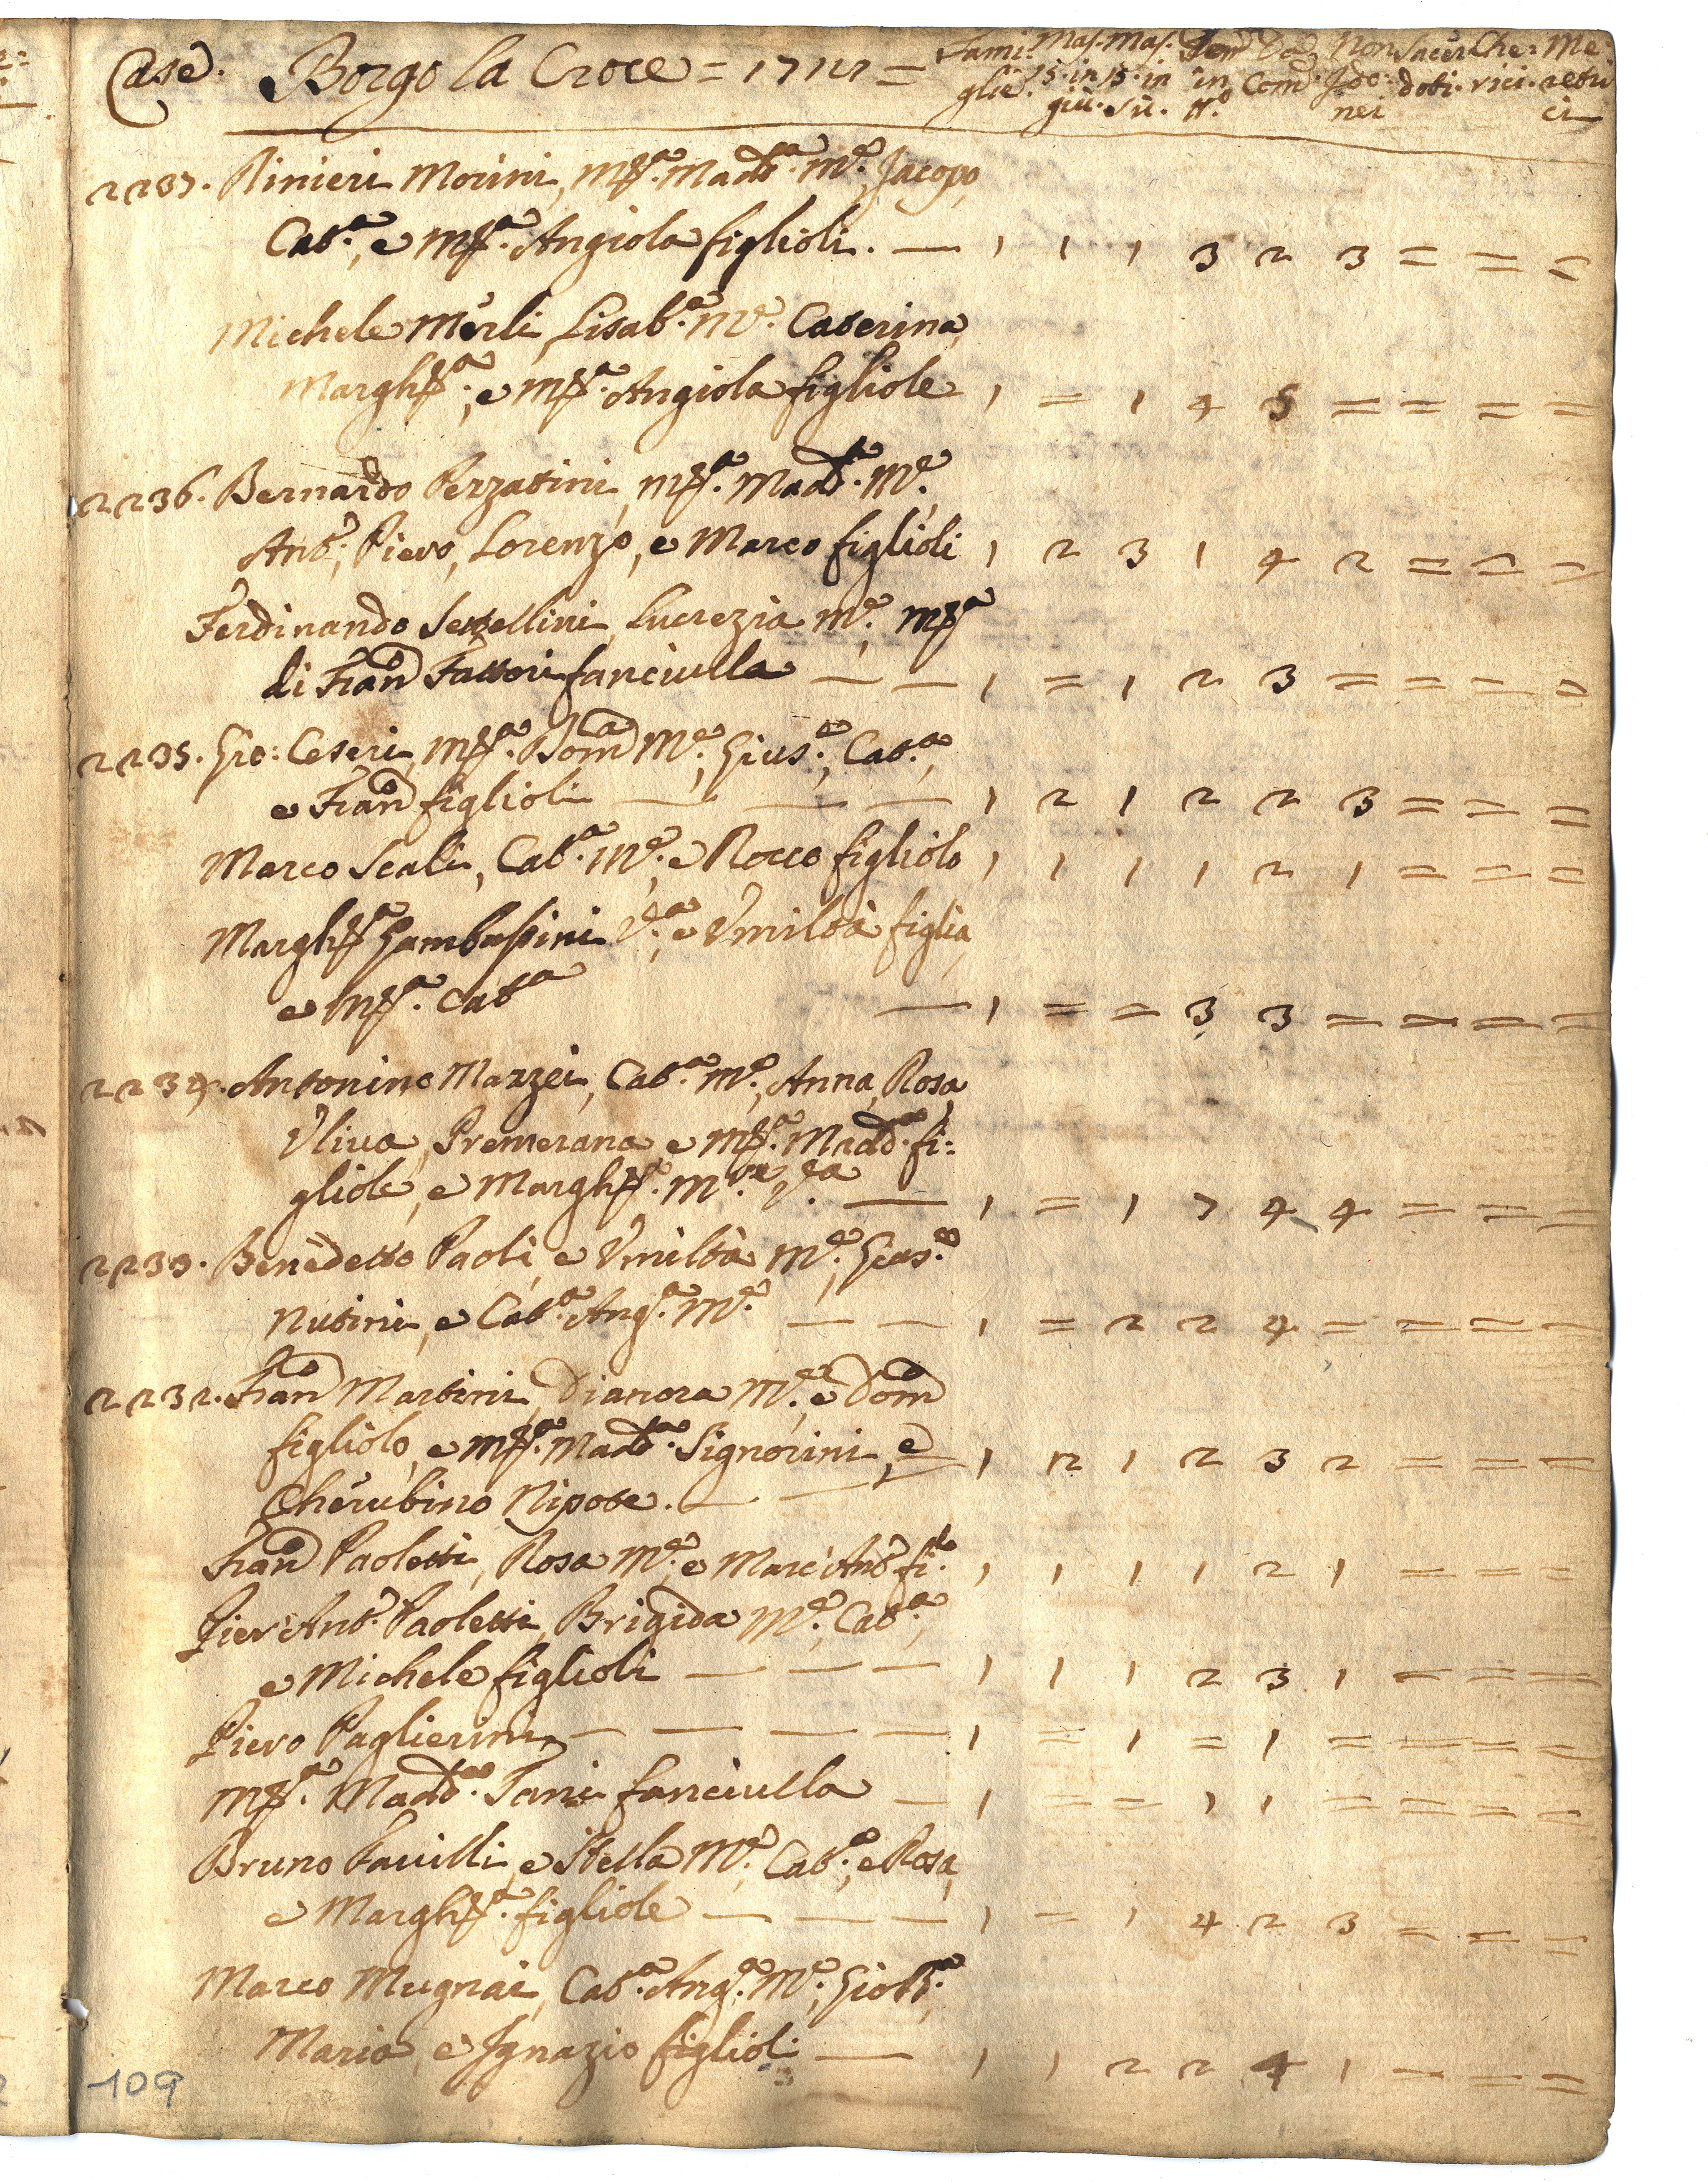 Case. Borgo la Croce = 1727 = Fami: glie. Mas. 15. in giù. Mas. 15. in su. Fem in n.° Com. Non Jdo: nei Sacer doti. Che: rici. Me: retri ci
2237. Rinieri Morini, M.ª Madd.ª M.e, Jacopo,
Cat.ª, e M.ª Angiola figlioli. — 1 1 1 3 2 3 = = =
Michele Merli, Lisab.ª M.e Caterina,
Margh.ª, e M.ª Angiola figliole 1 = 1 4 5 = = = =
2236. Bernardo Pezzatini, M.ª Madd.ª M.e,
Ant.°, Piero, Lorenzo, e Marco figlioli 1 2 3 1 4 2 = = =
Ferdinando Sestellini, Lucrezia M.e, M.ª
di Fran.co Fattori fanciulla — — 1 = 1 2 3 = = = =
2235. Gio: Ceseri, M.ª Dom.ca M.e, Gius.e, Cat.ª,
e Fran.co figlioli — — — 1 2 1 2 2 3 = = =
Marco Scali, Cat.ª M.e, e Rocco figliolo 1 1 1 1 2 1 = = =
Margh.ª Gambassini V.ª, e Vmiltà figlia,
e M.ª Cat.ª — 1 = = 3 3 = = = =
2234. Antonino Mazzei, Cat.ª M.e, Anna, Rosa,
Vliva, Premerana, e M.ª Madd.ª fi:
gliole, e Margh.ª M.re V.ª — 1 = 1 7 4 4 = = =
2233. Benedetto Paoli, e Vmiltà M.e, Gas.e
Nutini, e Cat.ª Ang.ª M.e — — 1 = 2 2 4 = = = =
2232. Fran.co Martini, Dianora M.e, e Dom.co
figliolo, e M.ª Madd.ª Signorini, e 1 2 1 2 3 2 = = =
Cherubino Nipote. — —
Fran.co Paoletti, Rosa M.e, e Marc'Ant.° fi.lo 1 1 1 1 2 1 = = =
Pier'Ant.° Paoletti, Brigida M.e, Cat.ª,
e Michele figlioli — — — 1 1 1 2 3 1 = = =
Piero Paglierini — — — — 1 = 1 = 1 = = = =
M.ª Madd.ª Tani fanciulla — 1 = = 1 1 = = = =
Bruno Favilli, e Stella M.e, Cat.ª, e Rosa,
e Margh.ª figliole — — — 1 = 1 4 2 3 = = =
Marco Mugnai, Cat.ª Ang.ª M.e, Gio: B.ª,
Maria, e Jgnazio figlioli — 1 1 2 2 4 1 = = =
109